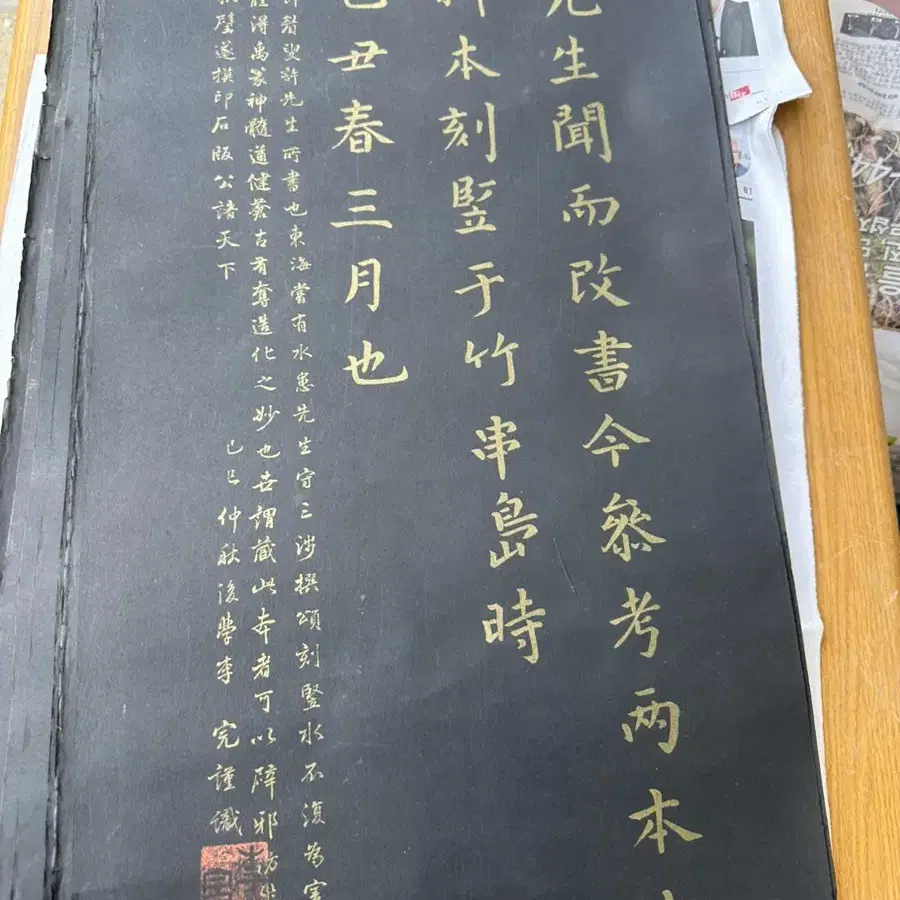 先生聞而改書今叅考两本
本刻竪于竹串島時
己丑春三月也
眉叟許先生所書也東海嘗有水患先生守三涉撰頌刻竪水不復為害
得禹篆神髓遒健蒼古有奪造化之妙也世謂藏此本者可以辟邪
璧遂摸印石版公諸天下
己巳仲秋後學李完謹識